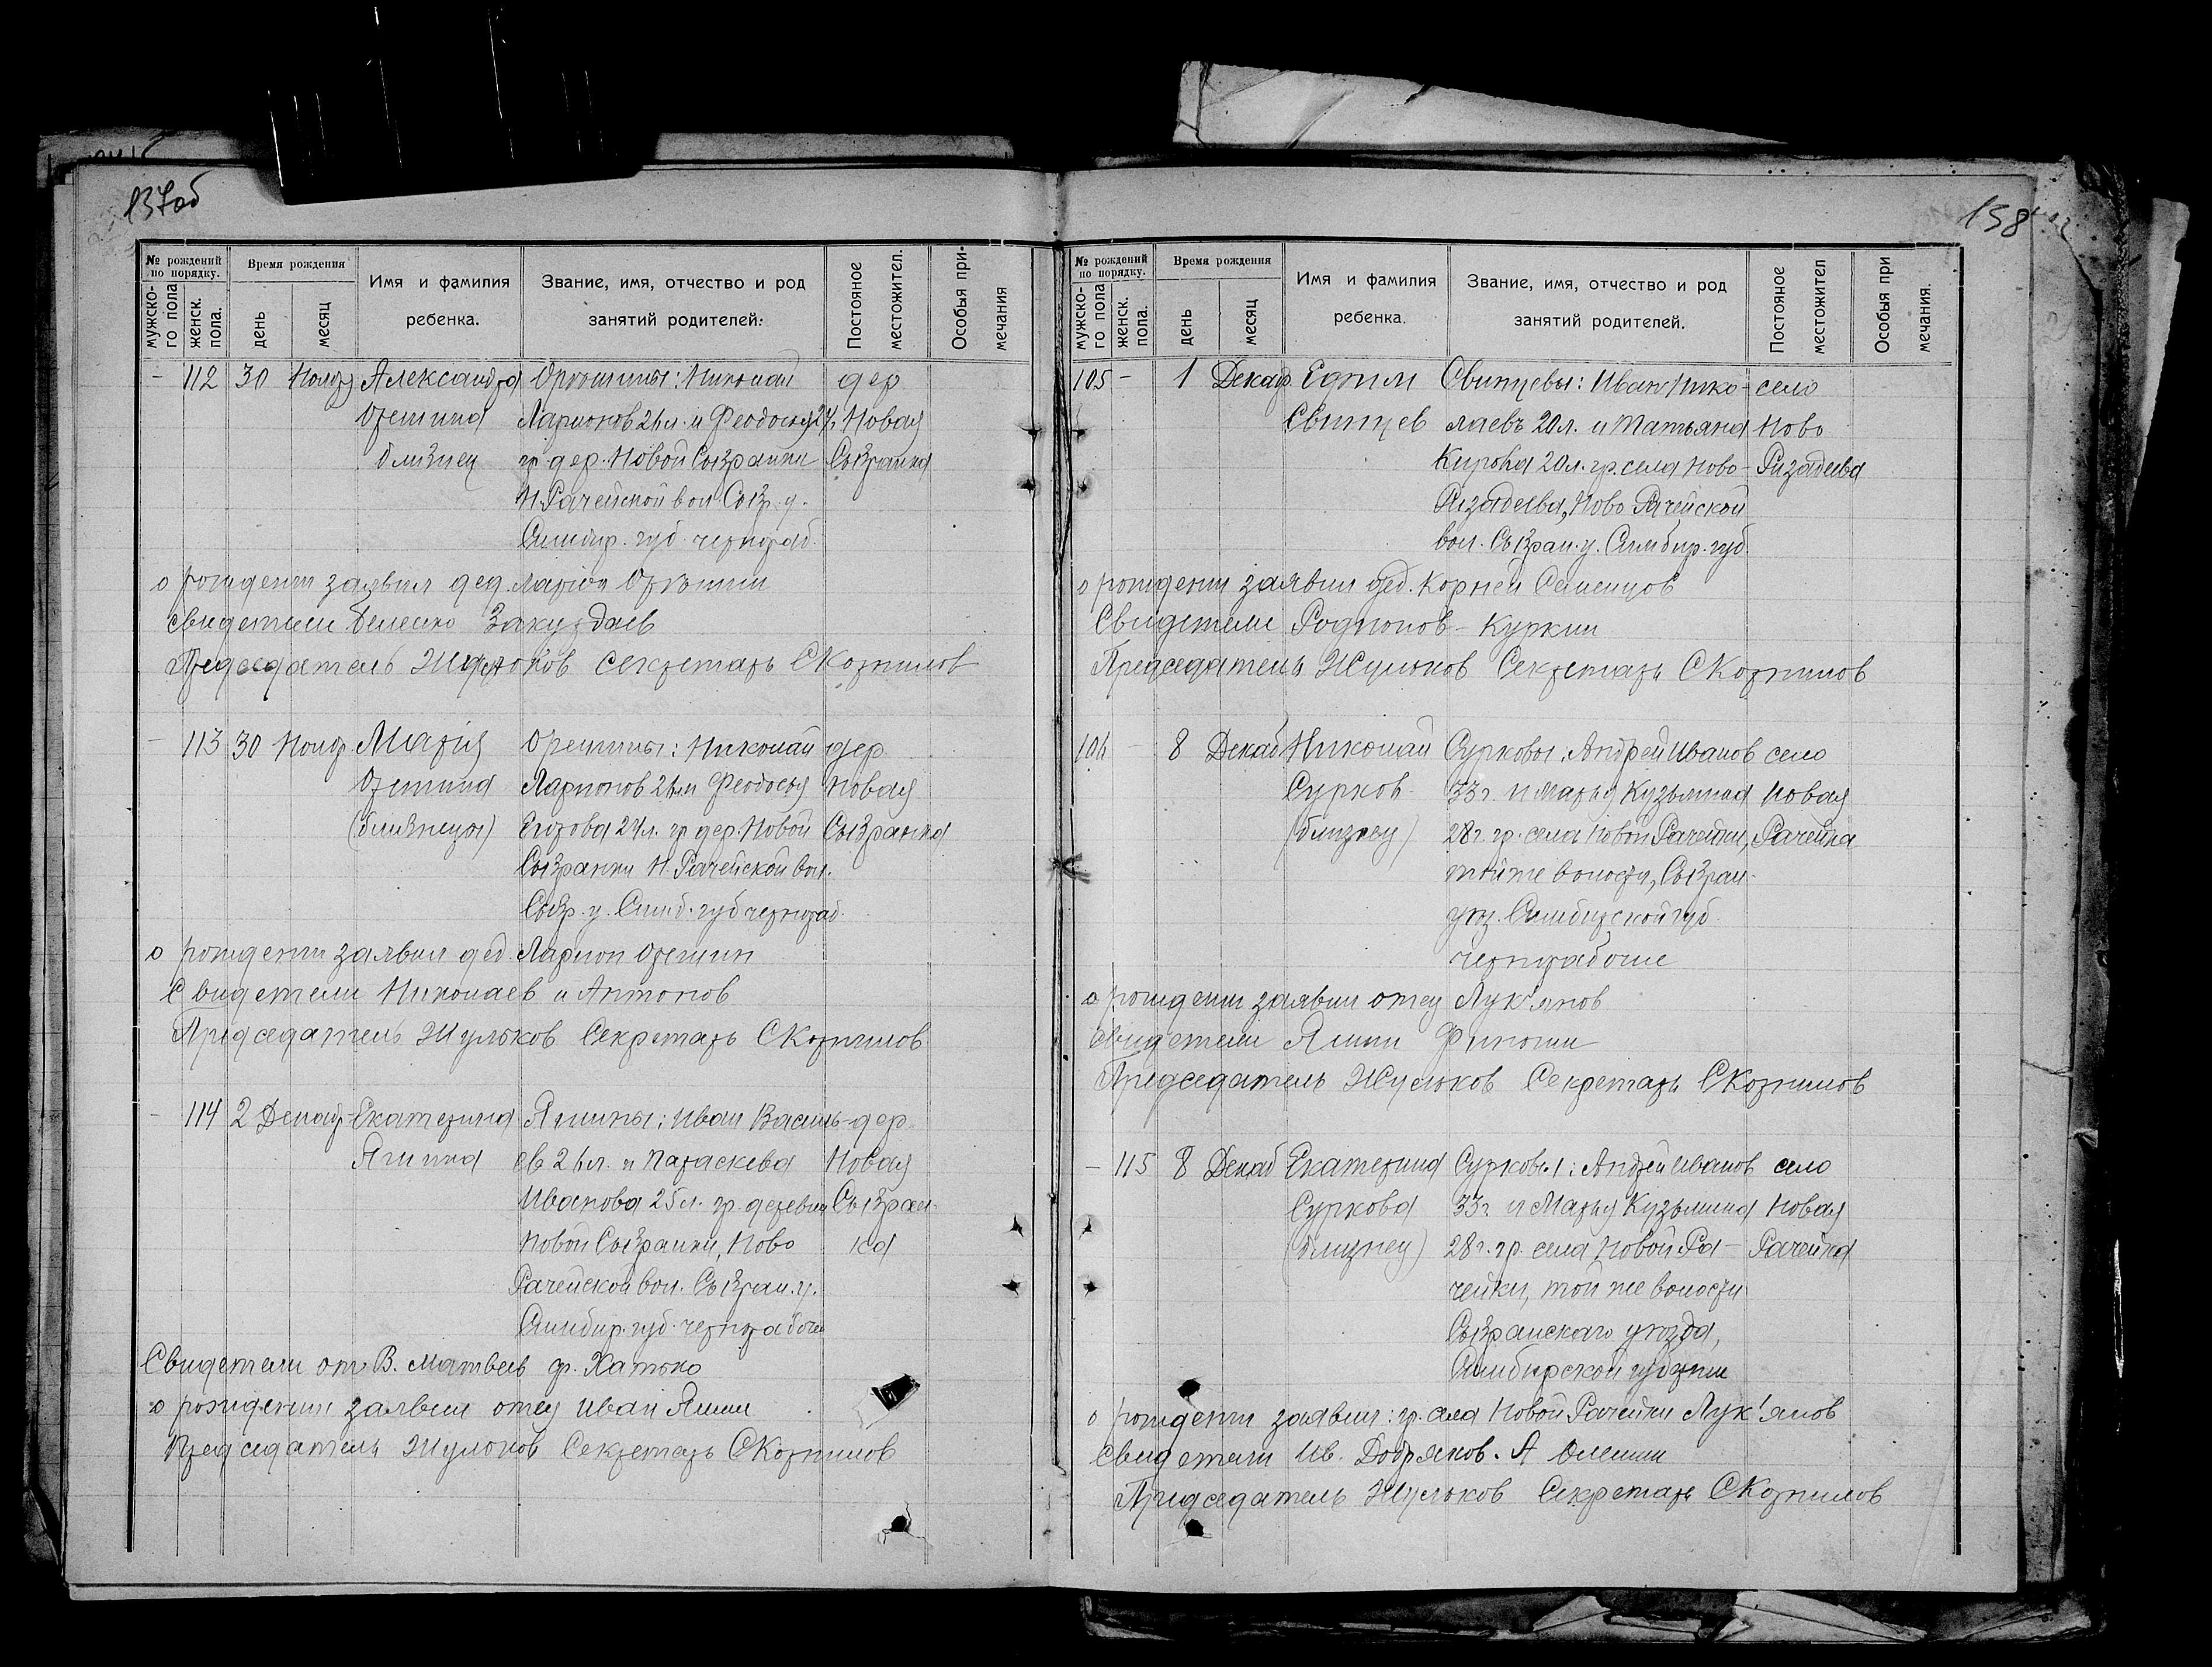 137об
№ рождений по порядку.
мужско-го пола
женск. пола.
Время рождения
день
месяц
Имя и фамилия ребенка.
Звание, имя, отчество и род занятий родителей:
Постояное местожител.
Особыя при-мечания
– 112 30 Нояб Александра Николай дер
близнец Ларионов 26 л. и Феодосья 24 Новая
гр дер. Новой Сызранки Сызранка
Н. Рачейской вол Сызр. у.
Симбир. губ. чернораб.
о рождении заявил дед. Ларион
свидетели
Председатель Жульков секретарь С Корнилов
– 113 30 Нояб. Мария Орешины: Николай дер
Орешина Ларионов 26 л и Феодосья Новая
(близнецы) 24 л. гр дер. Новой Сызранка
Сызранки Н. Рачейской вол.
Сызр. у. Симб. губ чернораб.
о рождении заявил дед. Ларион Орешин
Свидетели Николаев и Антонов
Председатель Жульков Секретарь С Корнилов
– 114 2 Декаб Екатерина Яшины: Иван Василь- дер
Яшина ев 26 л. и Параскева Новая
Иванова 25 л. гр. деревни Сызран-
Новой Сызранки, Ново ка
Рачейской вол. Сызран. у.
Симбир. губ. чернорабочи
Свидетели В. Матвеев ф. Хатько
о рождении заявил отец Иван Яшин
Председатель Жульков Секретарь С Корнилов
158
№ рождений по порядку.
мужско-го пола
женск. пола.
Время рождения
день
месяц
Имя и фамилия ребенка.
Звание, имя, отчество и род занятий родителей.
Постояное местожител
Особыя при мечания.
105 – 1 Декаб Ефим Свинцевы: Иван Нико- село
Свинцев лаевъ 20 л. и Татьяна Ново
20 л. гр. села Ново- Ризадеева
Ризадеева, Ново Рачейской
вол. Сызран. у. Симбир. губ.
о рождении заявил дед. Корней
Свидетели Родионов – Куркин
Председатель Жульков Секретарь С Корнилов
106 – 8 Декаб Николай Сурковы: Андрей Иванов село
Сурков 33 г. и Марья Кузьмина Новая
(близнец) 28 г. гр. села Новой Рачейки, Рачейка
той же волости, Сызран-
уез. Симбирской губ.
чернорабочие
о рождении заявил отец Лук'янов
свидетели Яшин
Председатель Жульков Секретарь С Корнилов
– 115 8 Декаб Екатерина Сурковы: Андрей Иванов село
Суркова 33 г. и Марья Кузьмина Новая
(близнец) 28 г. гр. села Новой Ра- Рачейка
чейки, той же волости
Сызранскаго уезда,
Симбирской губерни
о рождени заявил: гр. села Новой Рачейки Лук'янов
свидетели Ив. Добряков. А
Председатель Жульков Секретарь С Корнилов